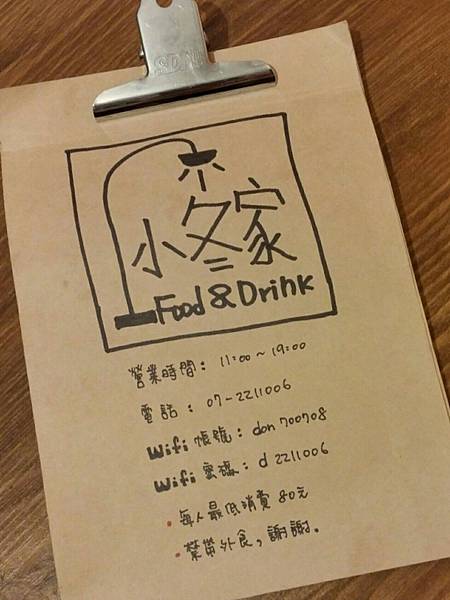 SDI
小冬家
Food & Drink
營業時間：11:00～19:00
電話：07-2211006
Wifi 帳號：don700708
Wifi 密碼：d2211006
・每人最低消費 80元
・禁帶外食，謝謝。